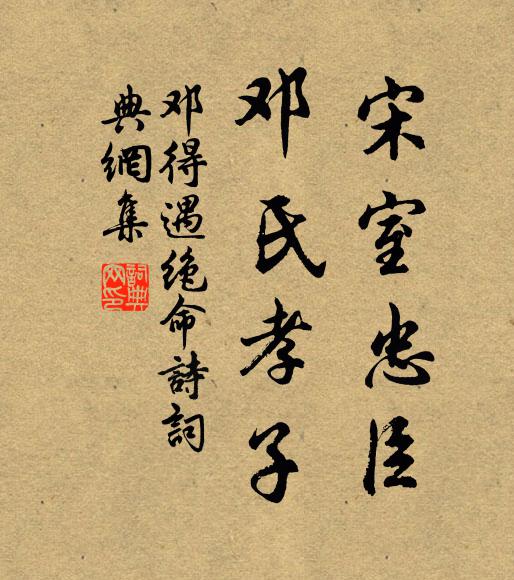 宋室忠臣
邓氏孝子
邓得遇绝命詩詞
典網集
詞典
网印